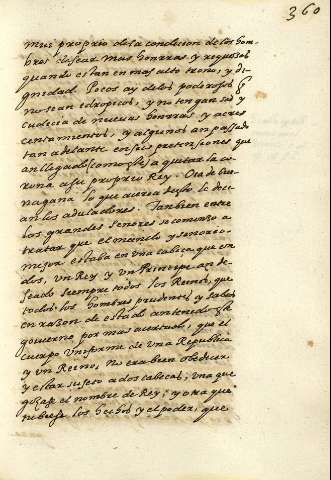 360
muy proprio de la condicion de los hom-
bres desear mas honrras y requessas
quando estan en mas alto trono, y di-
gnidad. Pocos ay de los poderosos q̃
no sean edropicos, y no tengan sed y
cudicia de nueuas honrras, y acres
centamientos, y algunos an passado
tan adelante en sus pretensiones que
an llegado (como este) a quitar la co-
rona a su proprio Rey. Oia de bue-
na gana lo que acerca desto le deci-
an los aduladores. Tanbien entre
los grandes señores se comenzo a
tratar que el mando y señorio
mejor estaba en una cabeça que en
dos, un Rey y un Principe aya de-
seado siempre todos los Reinos, que
todos los hombres prudentes y sabios
en razon de estado an tenido este
gouierno por mas acertado, que el
cuerpo vniforme de una Republica
y un Reino, no era bien obedecer,
y estar sujeto a dos cabeças; una que
gozase el nombre de Rey; y otra que
hubiese los hechos y el poder, que